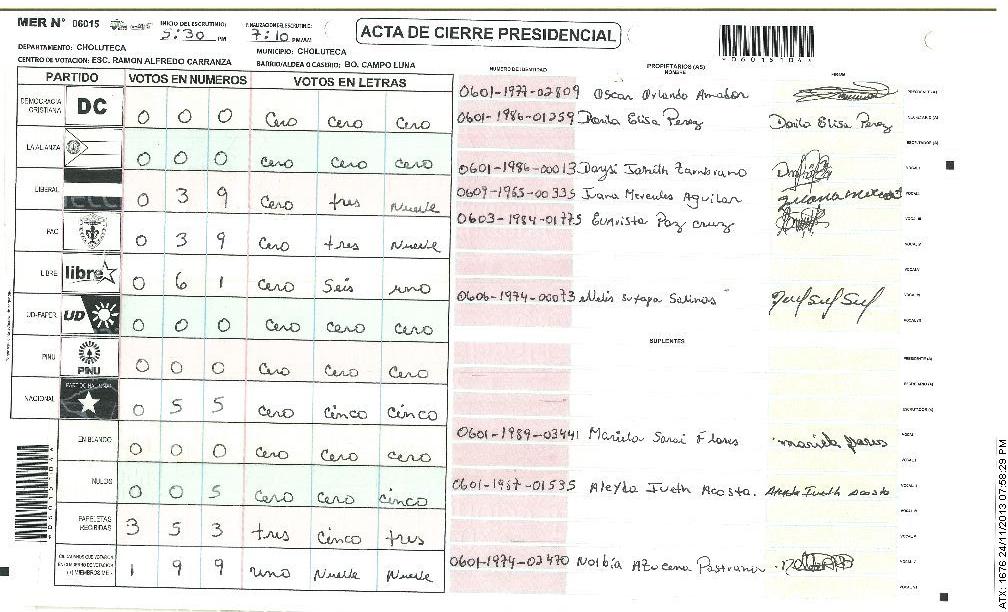 MER N° 06015
INICIO DEL ESCRUTINIO: 5:30 PM
FINALIZACION DEL ESCRUTINIO: 7:10 PM/AM
ACTA DE CIERRE PRESIDENCIAL
*D60151DA*
DEPARTAMENTO: CHOLUTECA
MUNICIPIO: CHOLUTECA
CENTRO DE VOTACION: ESC. RAMON ALFREDO CARRANZA
BARRIO/ALDEA O CASERIO: BO. CAMPO LUNA
PARTIDO VOTOS EN NUMEROS VOTOS EN LETRAS
DEMOCRACIA CRISTIANA DC 0 0 0 Cero Cero Cero
LA ALIANZA 0 0 0 Cero Cero Cero
LIBERAL 0 3 9 Cero tres Nueve
PAC 0 3 9 Cero tres Nueve
LIBRE libre 0 6 1 Cero Seis uno
UD-FAPER UD 0 0 0 Cero Cero Cero
PINU PINU 0 0 0 Cero Cero Cero
NACIONAL PARTIDO NACIONAL 0 5 5 Cero Cinco Cinco
EN BLANCO 0 0 0 Cero Cero Cero
NULOS 0 0 5 Cero Cero Cinco
PAPELETAS RECIBIDAS 3 5 3 tres Cinco tres
1 9 9 uno Nueve Nueve
NUMERO DE IDENTIDAD PROPIETARIOS (AS) NOMBRE FIRMA
0601-1977-02809 Oscar Orlando Amador PRESIDENTE (A)
0601-1986-01259 Dorila Elisa Perez Dorila Elisa Perez
ESCRUTADOR (A)
0601-1986-00013 Daysi Zambrano
0609-1965-00335 Juana Mercedes Aguilar
0603-1984-01775 Evarista Paz cruz
0606-1974-00073 Salinas
SUPLENTES
PRESIDENTE (A)
SECRETARIO (A)
ESCRUTADOR (A)
0601-1989-03441 Mariela Sarai Flores
0601-1967-01535 Aleyda Iveth Acosta. Aleyda Iveth Acosta
0601-1974-02470 Norbia Azucena Pastrana
ATX: 1676 24/11/2013 07:58:29 PM